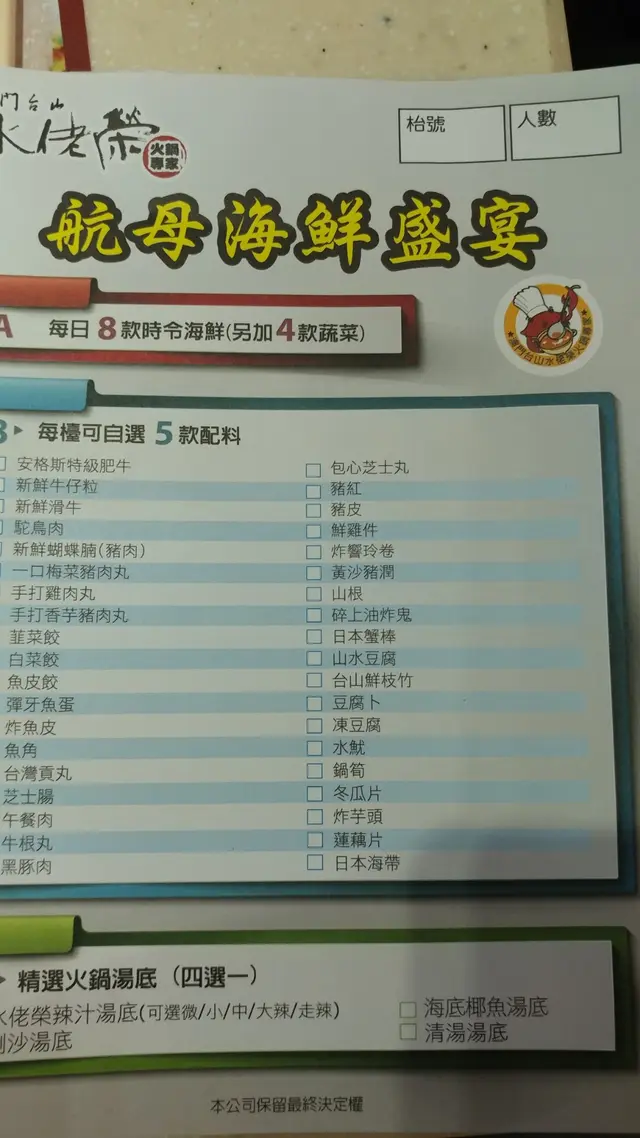 門台山
水佬榮
火鍋專家
枱號
人數
航母海鮮盛宴
A 每日8款時令海鮮(另加4款蔬菜)
澳門台山水佬榮火鍋專家
B 每檯可自選5款配料
安格斯特級肥牛
新鮮牛仔粒
新鮮滑牛
駝鳥肉
新鮮蝴蝶腩(豬肉)
一口梅菜豬肉丸
手打雞肉丸
手打香芋豬肉丸
韮菜餃
白菜餃
魚皮餃
彈牙魚蛋
炸魚皮
魚角
台灣貢丸
芝士腸
午餐肉
牛根丸
黑豚肉
包心芝士丸
豬紅
豬皮
鮮雞件
炸響玲卷
黃沙豬潤
山根
碎上油炸鬼
日本蟹棒
山水豆腐
台山鮮枝竹
豆腐卜
凍豆腐
水魷
鍋筍
冬瓜片
炸芋頭
蓮藕片
日本海帶
精選火鍋湯底（四選一）
水佬榮辣汁湯底(可選微/小/中/大辣/走辣)
沙湯底
海底椰魚湯底
清湯湯底
本公司保留最終決定權